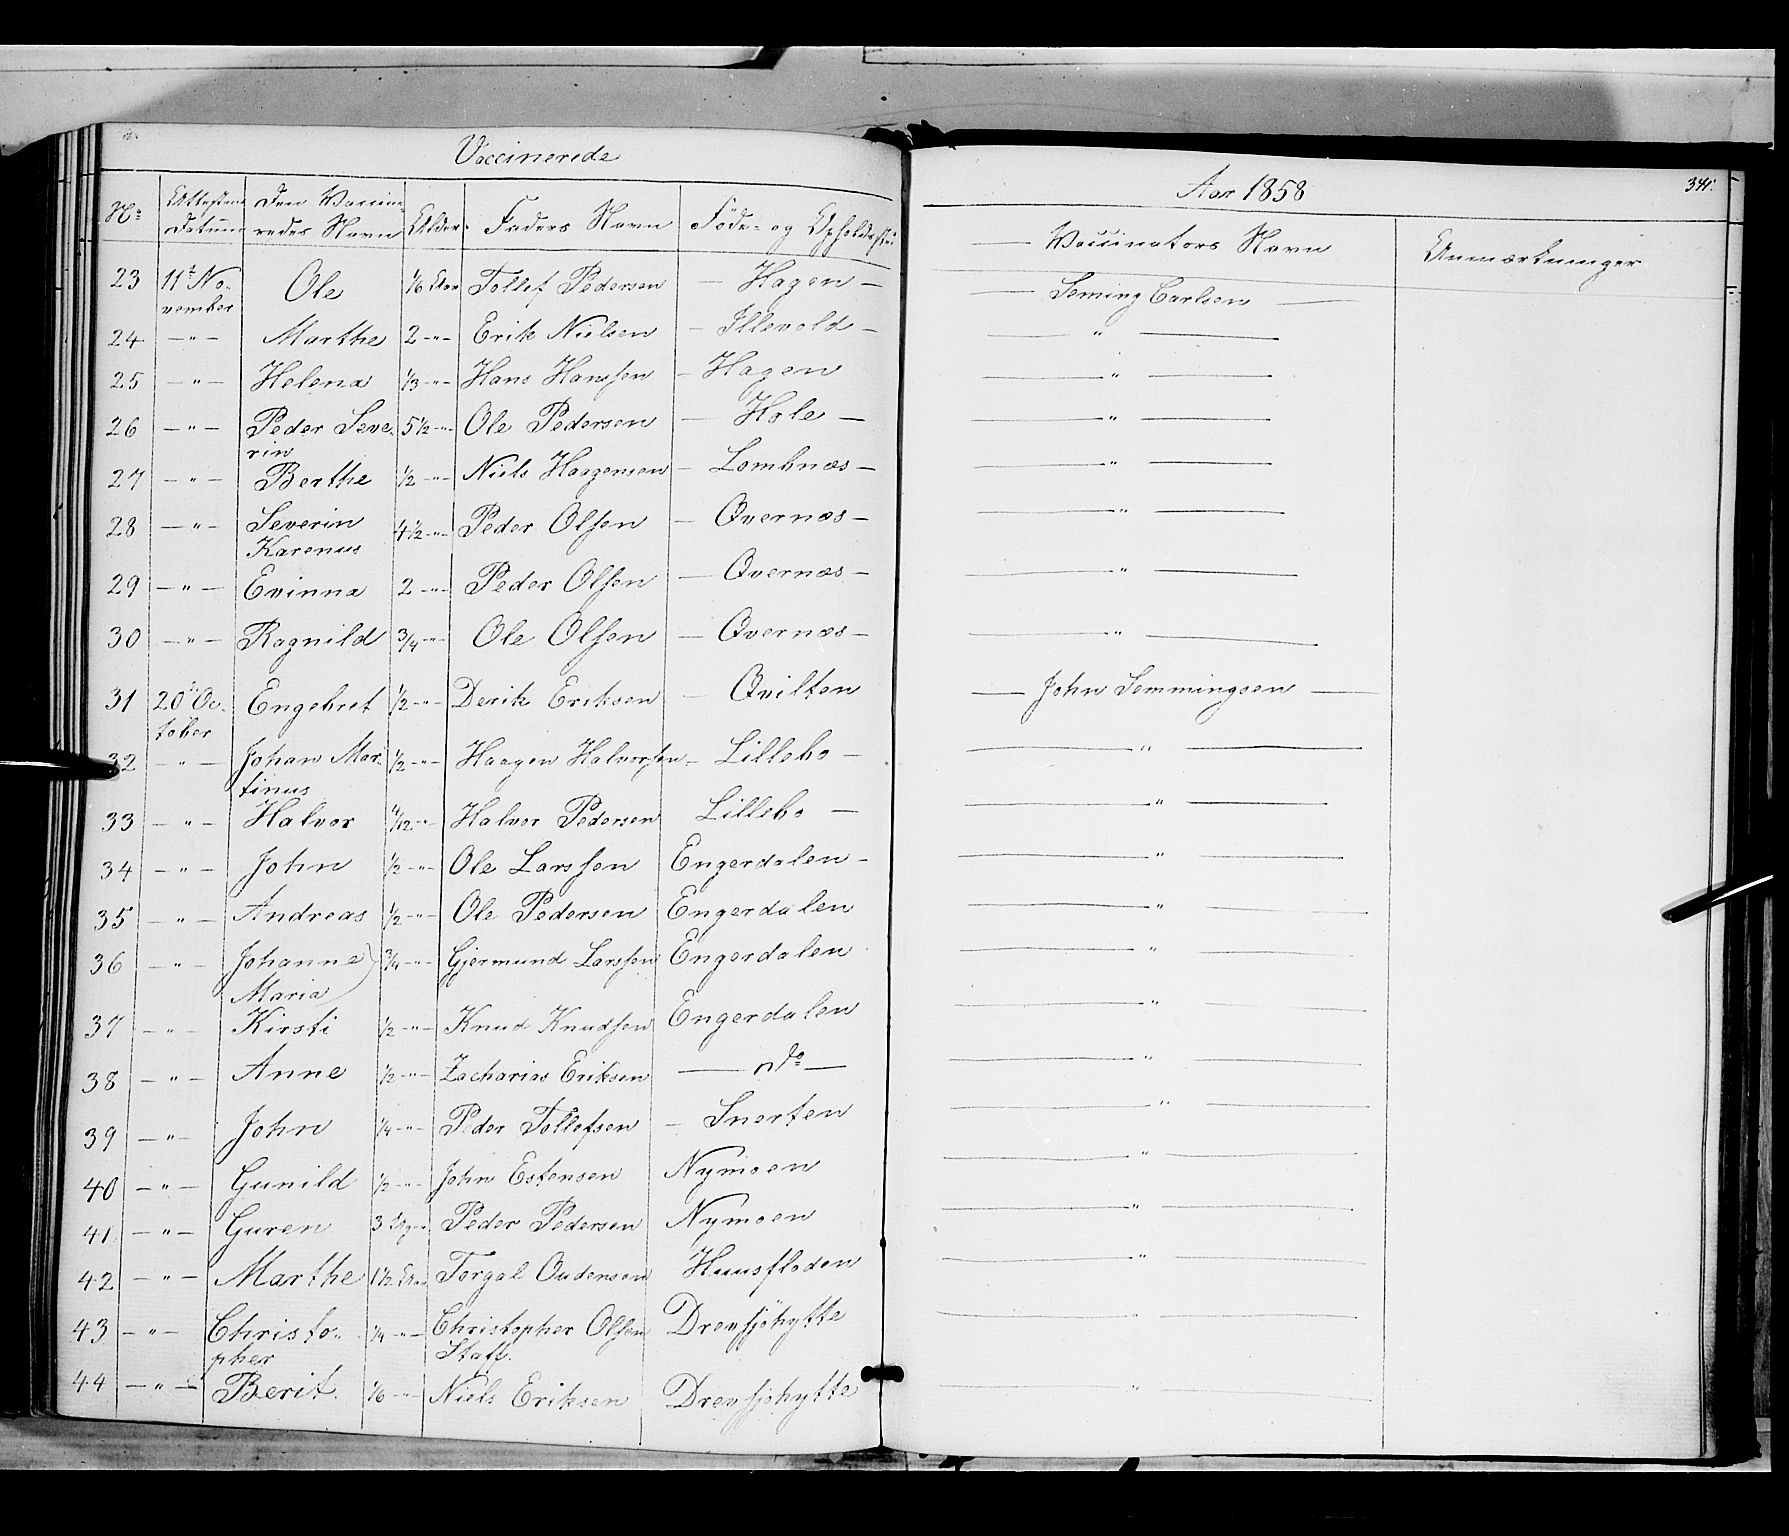 Vaccinerede
Aar 1858
341.
No Attestens Datum Den Vaccineredes Navn Alder. Faders Navn Föde- og Opholdsst.
Vaccinators Navn Anmærkninger
23 11te November Ole 1/6 Aar Tollef Pedersen — Hagen — — Seming Carlsen —
24 — " — Marthe 2 — " — Erik Nielsen — Illevold — — " —
25 — " — Helena 1/3 — " — Hans Hanssen — Hagen — " —
26 — " — Peder Severin 5 1/2 — " — Ole Pedersen — Hole — — " —
27 — " — Berthe 1/2 — " — Niels Haagensen — Lombnæs — — " —
28 — " — Severin Karenus 4 1/2 — " — Peder Olsen — Qvernæs — — " —
29 — " — Evinna 2 — " — Peder Olsen — Qvernæs — — " —
30 — " — Ragnild 3/4 — " — Ole Olsen — Qvernæs — — " —
31 20de October Engebret 1/2 — " — Derik Eriksen — Qvilten — John Semmingsen —
32 — " — Johan Martinus 1/2 — " — Haagen Halvorsen — Lillebo — — " —
33 — " — Halvor /12 — " — Halvor Pedersen Lillebo — — " —
34 — " — John 1/2 — " — Ole Larssen Engerdalen — — " —
35 — " — Andreas 1/2 — " — Ole Pedersen Engerdalen — " —
36 — " — Johanne Maria) 3/4 — " — Gjermund Larssen Engerdalen — " —
37 — " — Kirsti 1/2 — " — Knud Knudsen Engerdalen — " —
38 — " — Anne 1/2 — " — Zacharias Eriksen — do — — " —
39 — " — John 1/4 — " — Peder Tollefsen — Snerten — " —
40 — " — Gunild 1/2 — " — John Estensen Nymoen — " —
41 — " — Guren 3 Peder Pedersen Nymoen — " —
42 — " — Marthe 1 1/2 Aar Torgal Oudensen Huusfloden — " —
43 — " — Christopher 1/4 — " — Christopher Olsen Staff. Drevsjöhytte — " —
44 — " — Berit. 1/6 — " — Niels Eriksen Drevsjöhytte — " —